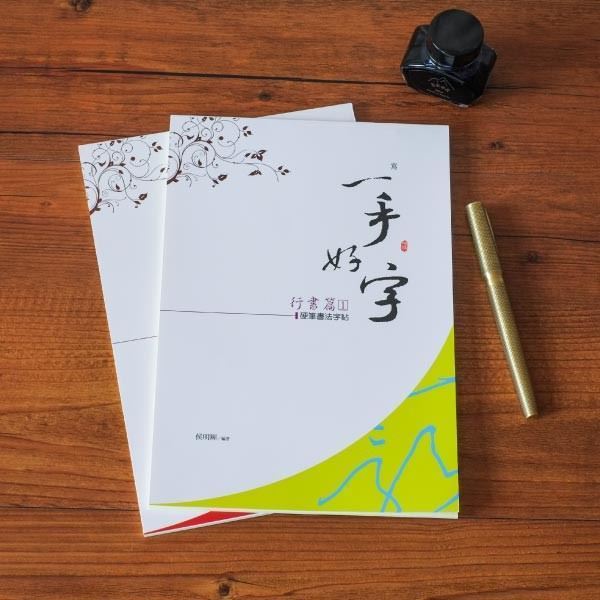 寫
一手
好字
行書篇1
硬筆書法字帖
侯明輝/編著